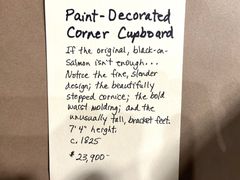 Paint-Decorated
Corner Cupboard
If the original, black-on-
salmon isn't enough...
Notice the fine, slender
design; the beautifully
stepped cornice; the bold
waist molding; and the
unusually tall, bracket feet.
7' 4" height.
c. 1825
$23,900-